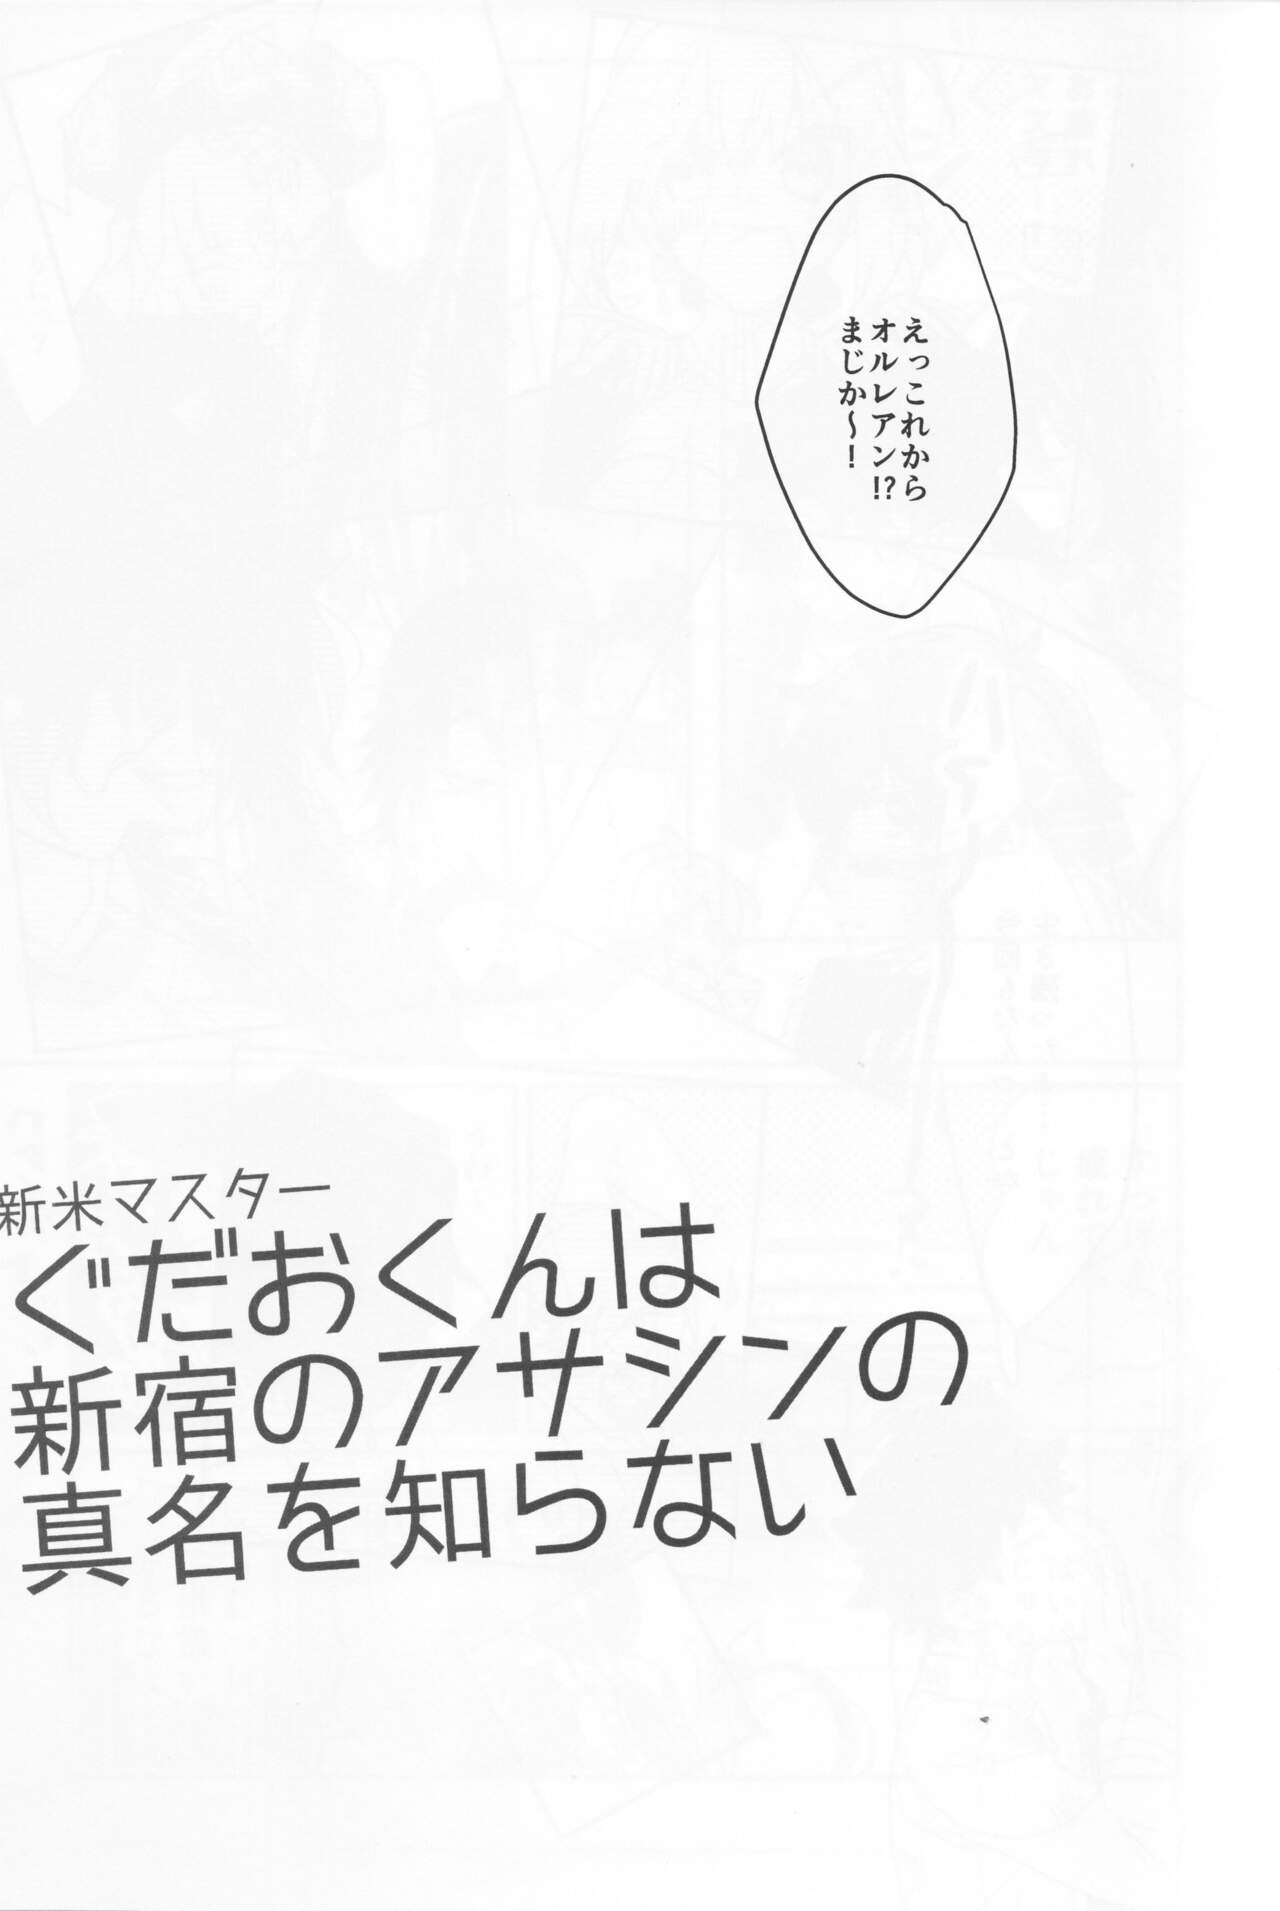 えっこれから
オルレアン!?
まじか〜！
新米マスター
ぐだおくんは
新宿のアサシンの
真名を知らない